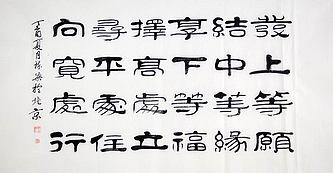 發上等願
結中等緣
享下等福
擇高處立
尋平處住
向寬處行
丁酉夏月於北京